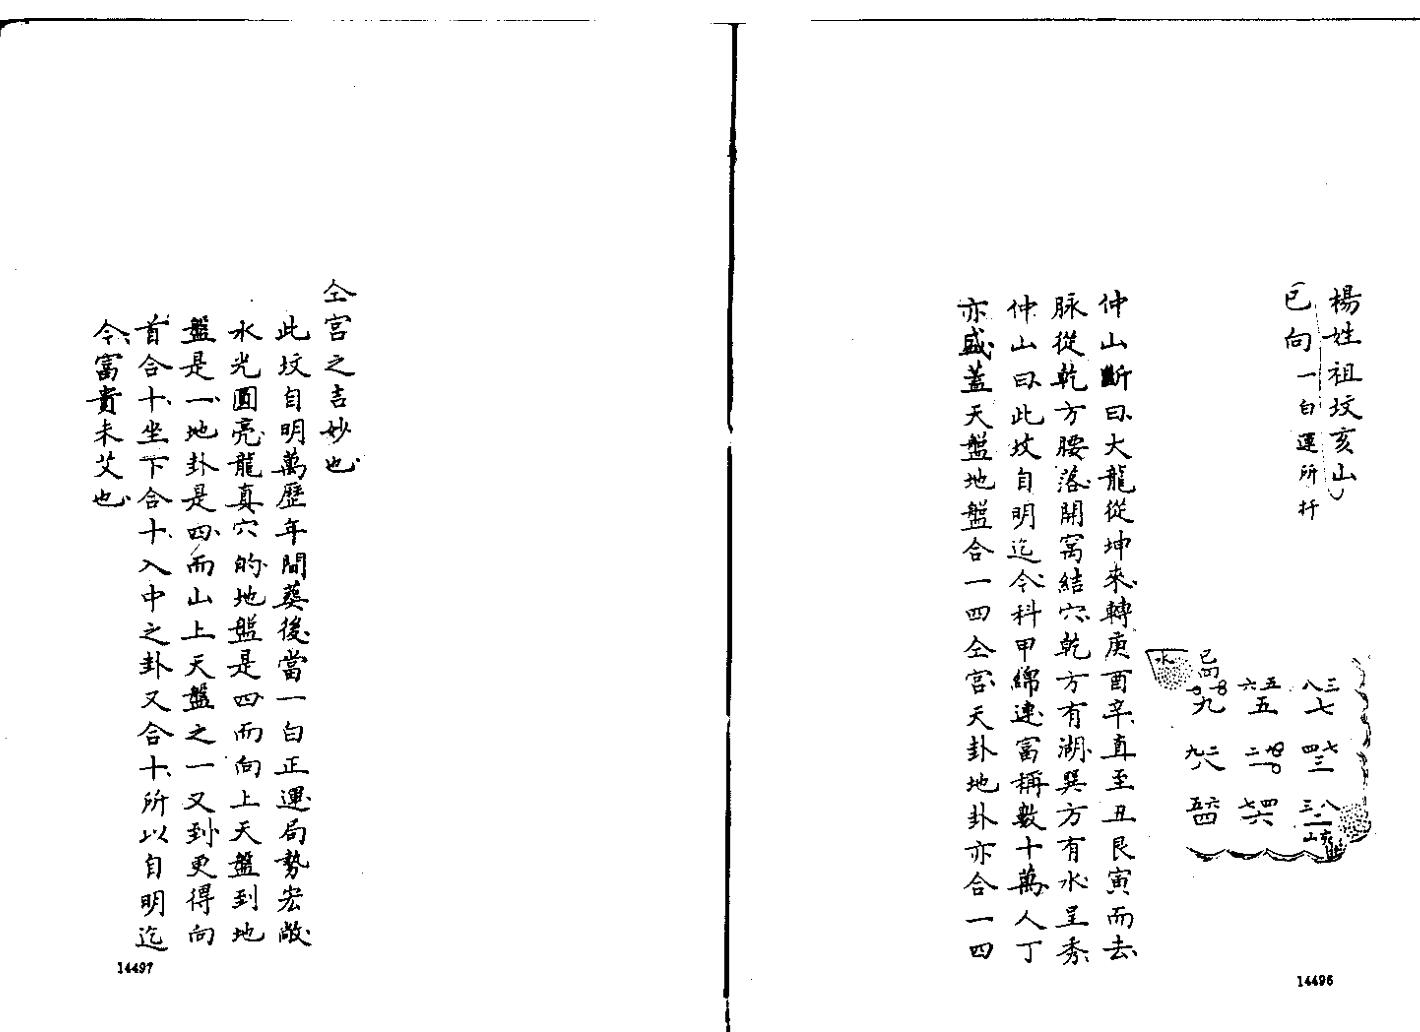 楊姓祖坟亥山
巳向一白運所扦
水
巳向
八三 七
六五 五
九
四七 三
二九 一
九二 八
三八 二
七四 六
五六 四
亥山
仲山斷曰大龍從坤來轉庚酉辛直至丑艮寅而去
脉從乾方腰落開窩結穴乾方有湖巽方有水呈秀
仲山曰此坟自明迄今科甲綿連富稱數十萬人丁
亦盛蓋天盤地盤合一四仝宮天卦地卦亦合一四
14496
仝宮之吉妙也
此坟自明萬歷年間葬後當一白正運局勢宏敞
水光圓亮龍真穴的地盤是四而向上天盤到地
盤是一地卦是四而山上天盤之一又到更得向
首合十坐下合十入中之卦又合十所以自明迄
今富貴未艾也
14497